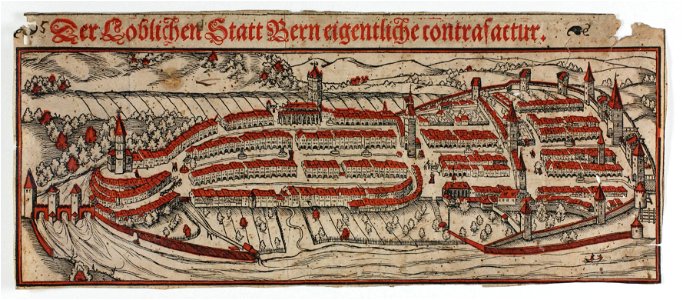 Der Loblichen Statt Bern eigentliche contrafactur.